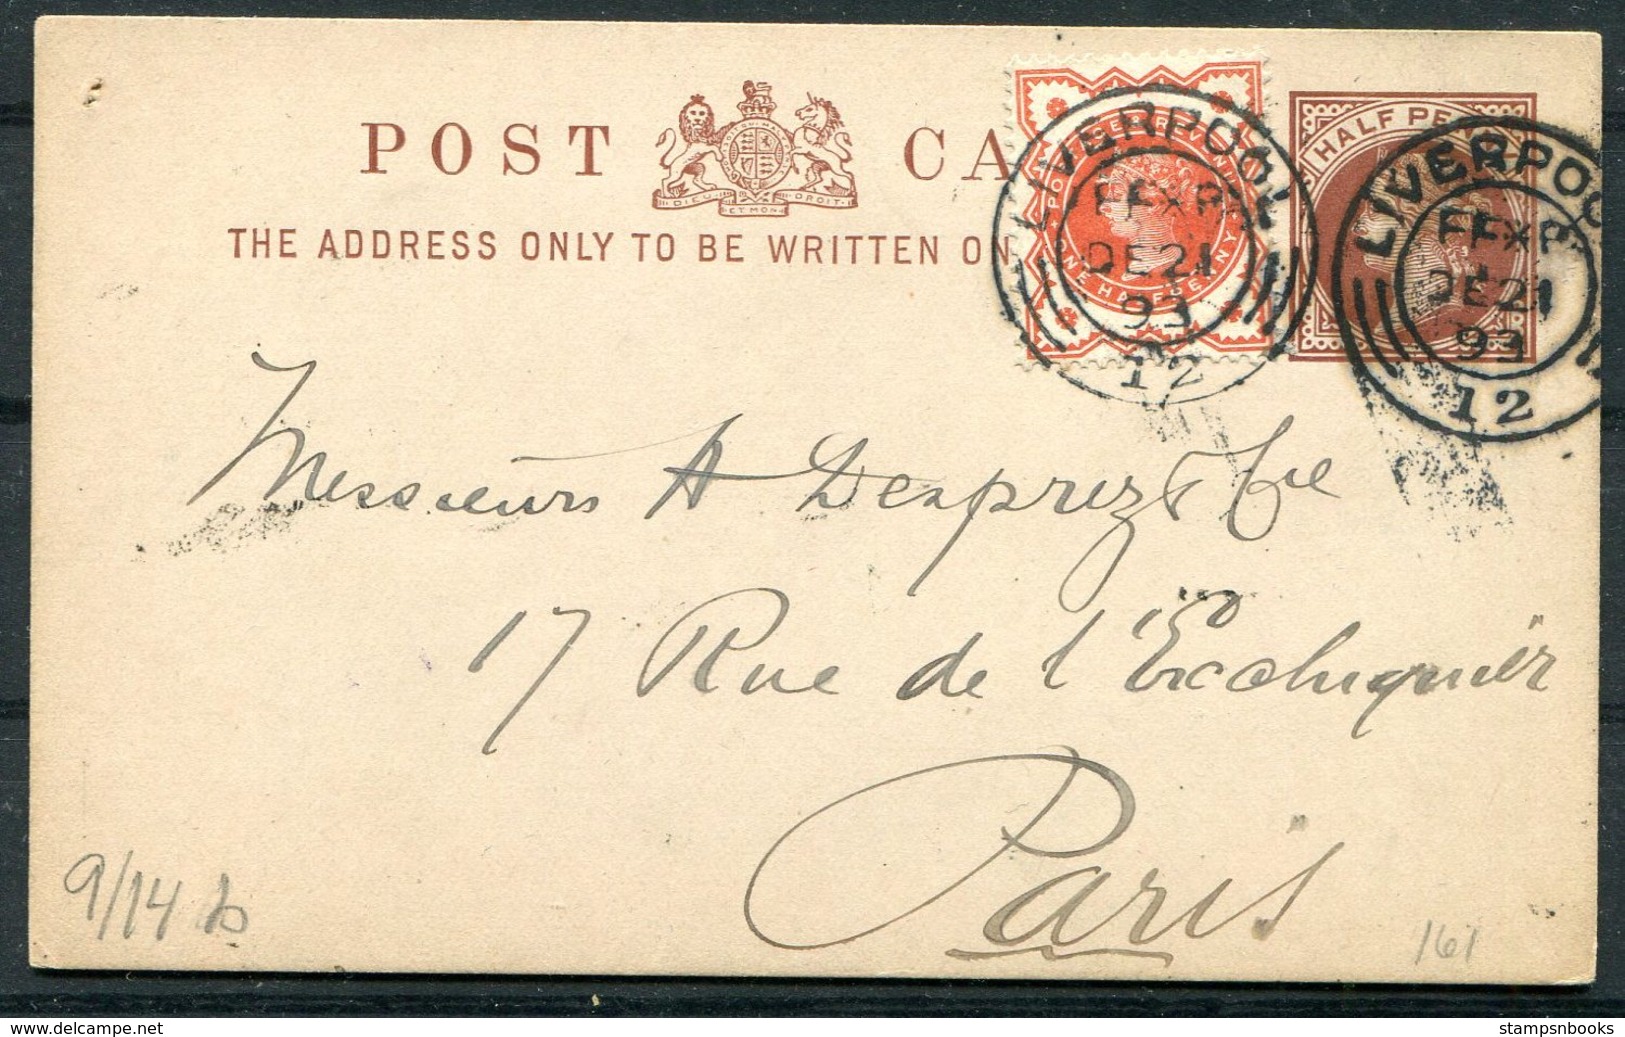 POST CA
DIEU ET MON DROIT
THE ADDRESS ONLY TO BE WRITTEN ON
LIVERPOOL
DE 21
93
12
HALF PE
LIVERPOO
DE 21
93
12
Messieurs A Desprez & Cie
17 Rue de l'Echiquier
Paris
9/14
161
www.delcampe.net
stampsnbooks